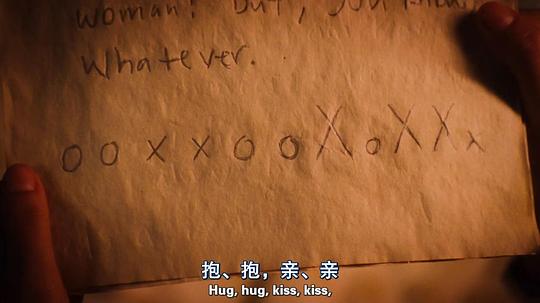 woman? But, you know
Whatever.
o o x x o o X o X X x
抱、抱，亲、亲
Hug, hug, kiss, kiss,